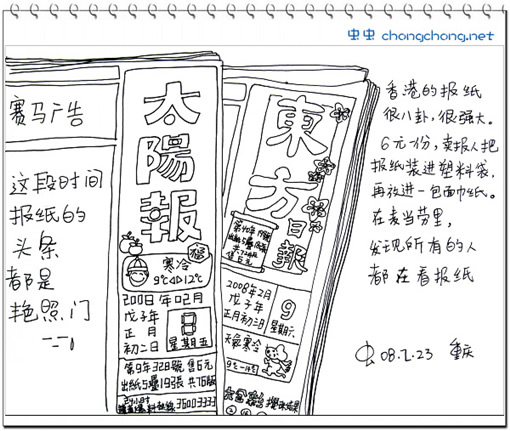 虫虫 chongchong.net
赛马广告
这段时间
报纸的
头条
都是
艳照门
太陽報
福
寒冷
9℃ 12℃
2008年02月
戊子年
正月
初二日
8
星期五
第9年328號 售6元
出紙5疊19張 共76版
24小時
3600 3333
東方日報
售6元
2008年2月
戊子年
正月初三日
9
星期六
天氣寒冷
香港的报纸
很八卦,很强大。
6元一份,卖报人把
报纸装进塑料袋,
再放进一包面巾纸。
在麦当劳里,
发现所有的人
都在看报纸
虫 08.2.23 重庆